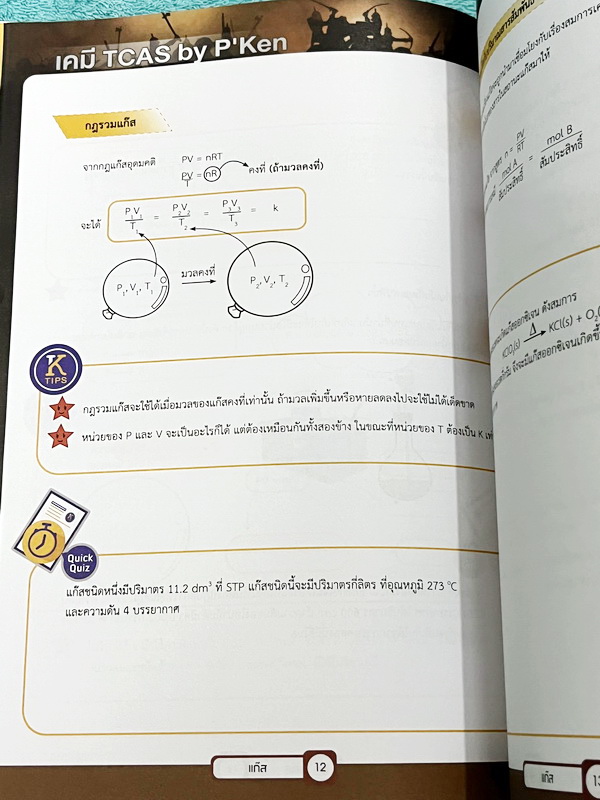 เคมี TCAS by P'Ken
กฎรวมแก๊ส
จากกฎแก๊สอุดมคติ PV = nRT
PV/T = nR คงที่ (ถ้ามวลคงที่)
จะได้ P₁V₁/T₁ = P₂V₂/T₂ = P₃V₃/T₃ = k
P₁, V₁, T₁ มวลคงที่ P₂, V₂, T₂
K
TIPS
กฎรวมแก๊สจะใช้ได้เมื่อมวลของแก๊สคงที่เท่านั้น ถ้ามวลเพิ่มขึ้นหรือหายลดลงไปจะใช้ไม่ได้เด็ดขาด
หน่วยของ P และ V จะเป็นอะไรก็ได้ แต่ต้องเหมือนกันทั้งสองข้าง ในขณะที่หน่วยของ T ต้องเป็น K
K
Quick
Quiz
แก๊สชนิดหนึ่งมีปริมาตร 11.2 dm³ ที่ STP แก๊สชนิดนี้จะมีปริมาตรกี่ลิตร ที่อุณหภูมิ 273 °C
และความดัน 4 บรรยากาศ
แก๊ส 12
n = PV/RT
mol A/สัมประสิทธิ์ = mol B/สัมประสิทธิ์
ดังสมการ
KClO₃(s) Δ KCl(s) + O₂
แก๊ส 13